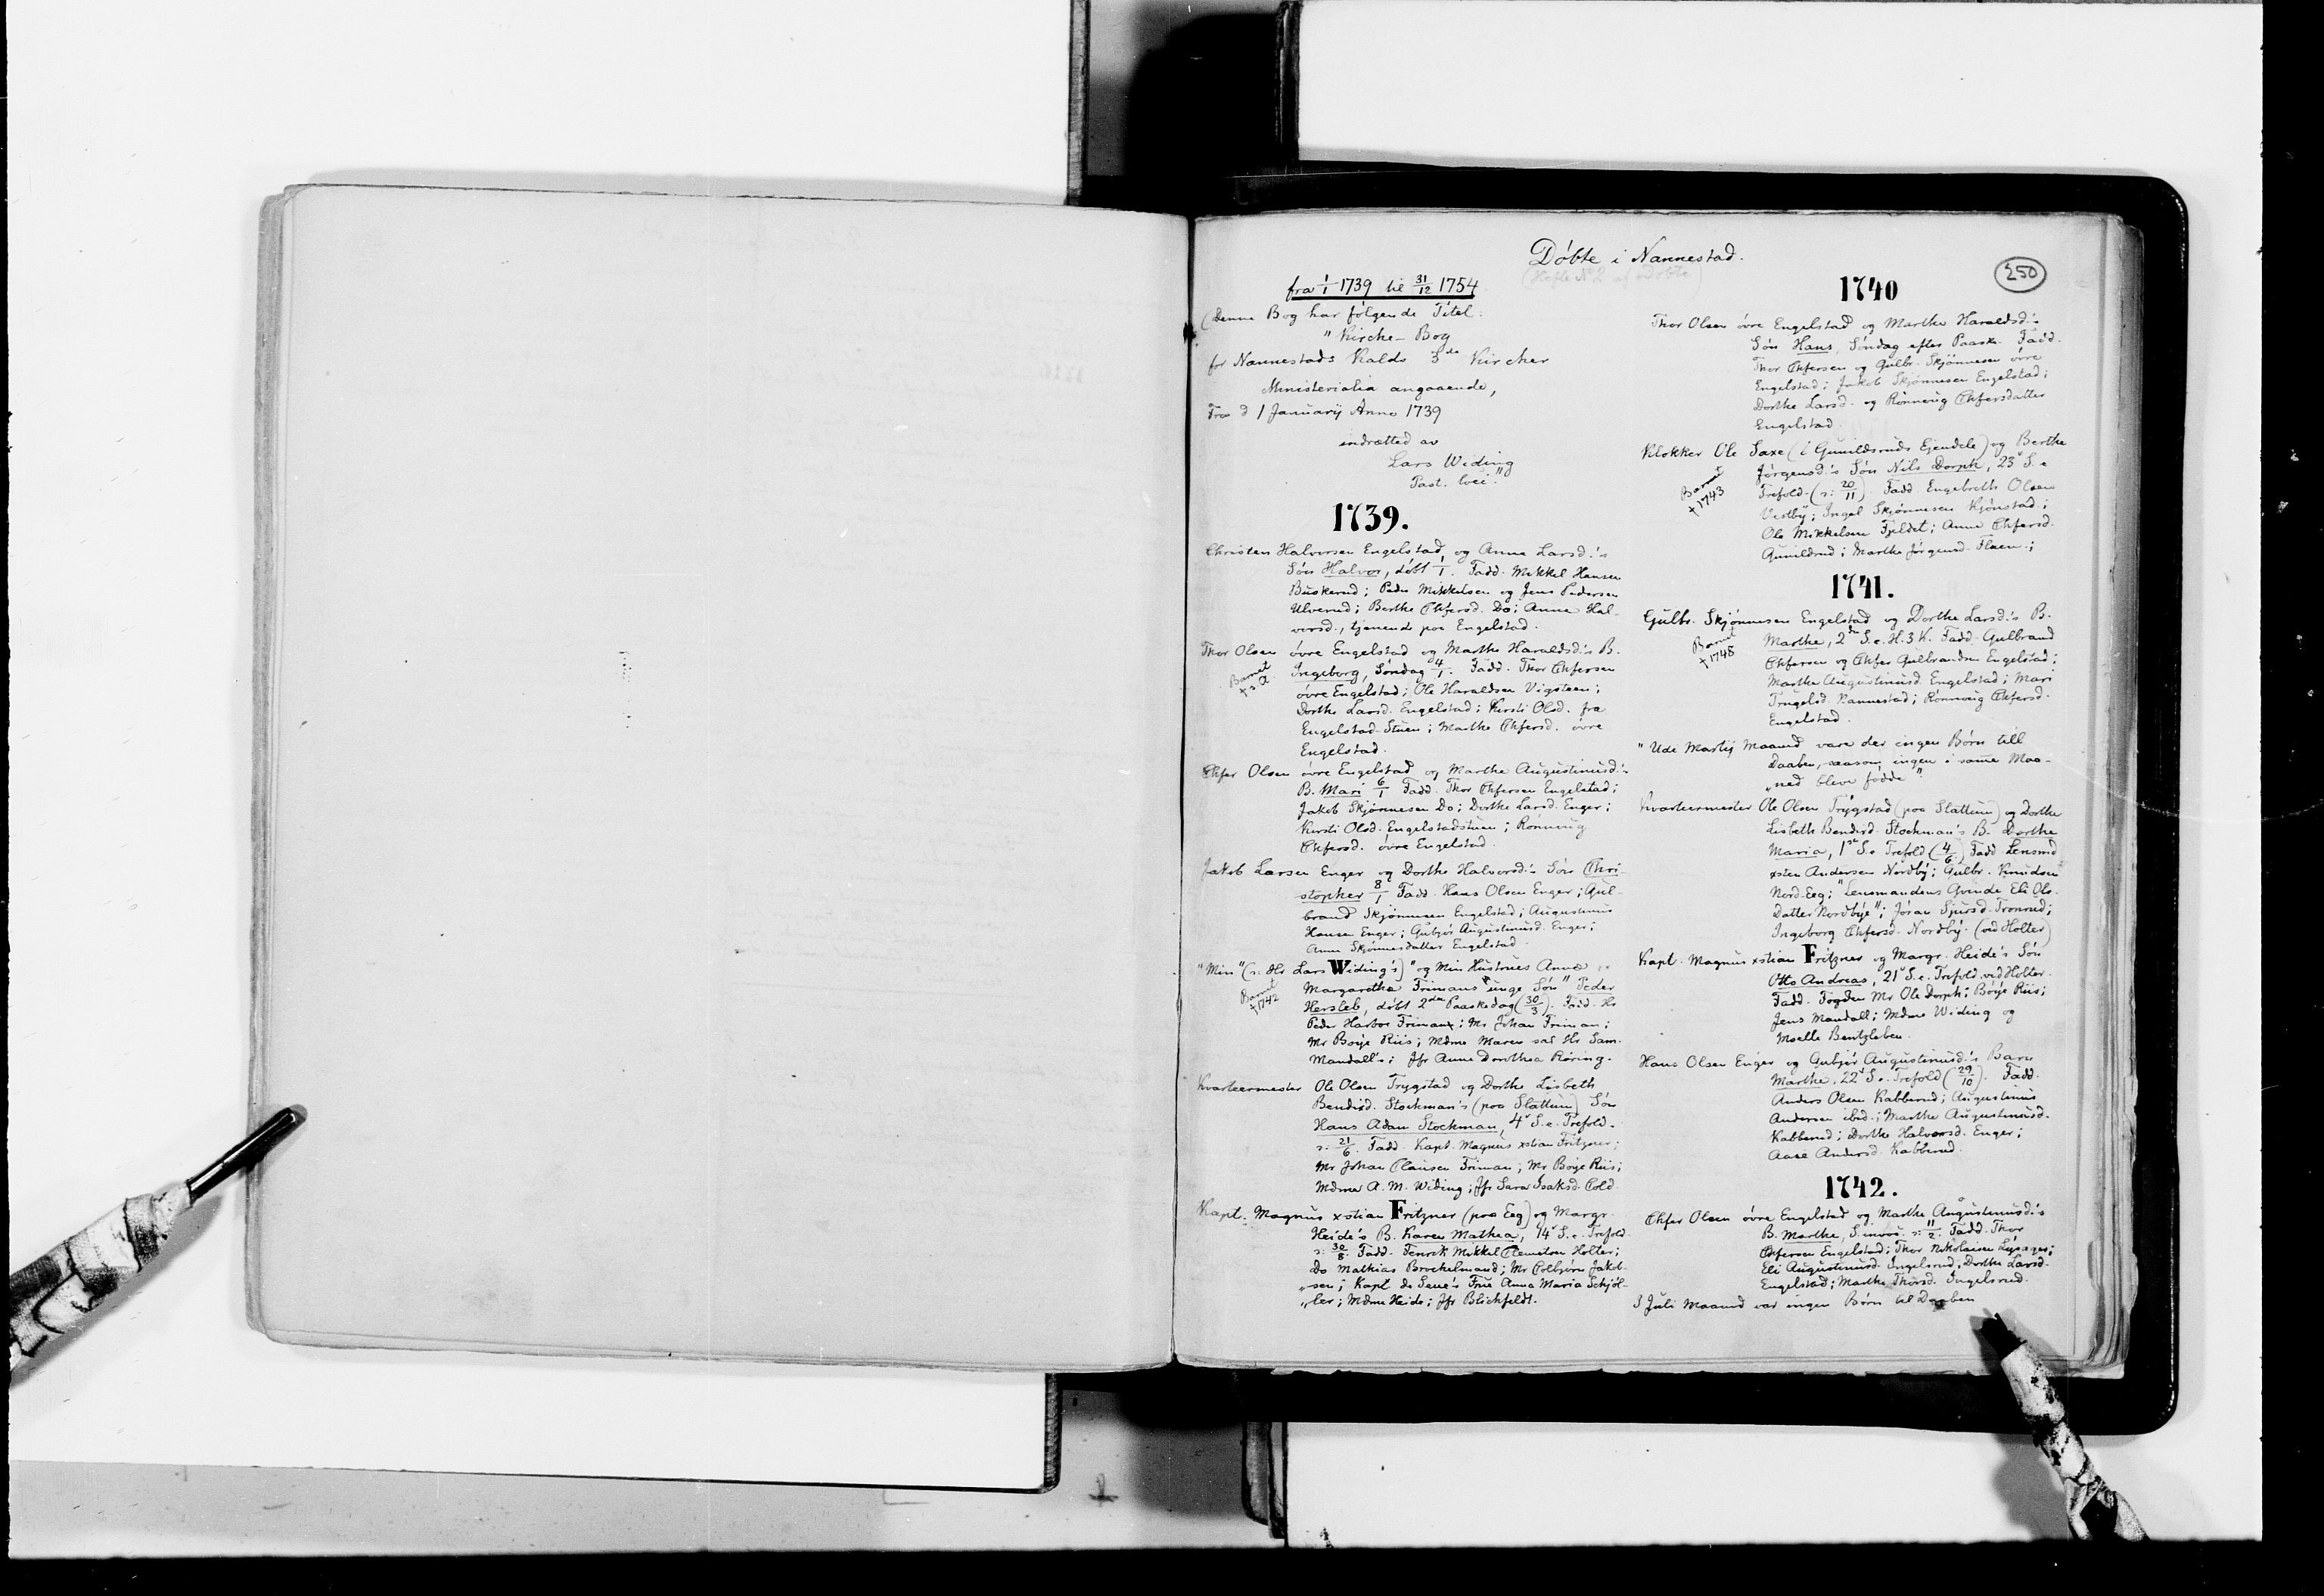 Döbte i Nannestad.
(Hefte No 2 af Döbte)
250
fra 1/1 1739 til 31/12 1754
(Denne Bog har følgende Titel:
"Kirche-Bog
for Nannestads Kalds 3de Kircher
Ministerialia angaaende,
Fra d 1 Januarij Anno 1739
indrætted av
Lars Widing
Past. loci."
1739.
Christen Halvorsen Engelstad og Anne Larsd.'s
Sön Halvor, döbt 1/1. Fadd. Mikkel Hansen
Buskerud; Peder Mikkelsen og Jens Pedersen
Ulverud; Berthe Chfersd. Do; Anne Hal-
vorsd., tjenende paa Engelstad.
Thor Olsen övre Engelstad og Marthe Haraldsd.'s B.
Barnet
+ s. A.
Ingeborg, Söndag 4/1. Fadd. Thor Chfersen
övre Engelstad; Ole Haraldsen Vigsteen;
Dorthe Larsd. Engelstad; Kersti Olsd. fra
Engelstad-Stuen; Marthe Chfersd. övre
Engelstad.
Chfer Olsen övre Engelstad og Marthe Augustinusd.'s
B. Mari 6/1 Fadd. Thor Chfersen Engelstad;
Jakob Skjönnesen Do; Dorthe Larsd. Enger;
Kersti Olsd. Engelstadstuen; Rönnoug
Chfersd. övre Engelstad.
Jakob Larsen Enger og Dorthe Halvorsd.'s Sön Chri-
stopher 8/1 Fadd. Hans Olsen Enger; Gul-
brand Skjönnesen Engelstad; Augustinus
Hansen Enger; Gubjör Augustinusd. Enger;
Anne Skjönnesdatter Engelstad.
"Min" (ɔ: Hr Lars Widing's) "og Min Hustrues Anna
Barnet
+ 1742
Margaretha Frimans "unge Sön" Peder
Hersleb, döbt 2den Paaskedag (30/3). Fadd. Hr
Peder Harboe Friman; Mr Johan Friman;
Mr Boye Riis; Mdme Maren sal Hr Sam.
Mandall's; Jfr Anne Dorothea Röring.
Kvarteermester Ole Olsen Trygstad og Dorthe Lisbeth
Bendixd. Stockman's (paa Slattum) Sön
Hans Adam Stockman, 4de S. e. Trefold.
ɔ: 21/6. Fadd. Kapt. Magnus xstian Fritzner;
Mr Johan Clausen Friman; Mr Boye Riis;
Mdme A. M. Widing; Jfr Sara Isaksd. Cold.
Kapt. Magnus xstian Fritzner (paa Eeg) og Margr.
Heide's B. Karen Mathea, 14de S. e. Trefold.
ɔ: 30/8. Fadd. Fenrik Mikkel Clemetsen Holter;
Do Mathias Brockelmand; Mr Colbjörn Jakob-
"sen; Kapt de Seue's Frue Anna Maria Schjöl-
"ler; Mdme Heide; Jfr Blichfeldt.
1740
Thor Olsen övre Engelstad og Marthe Haraldsd.'s
Sön Hans, Söndag efter Paaske. Fadd.
Thor Chfersen og Gulbr. Skjönnesen övre
Engelstad; Jakob Skjönnesen Engelstad;
Dorthe Larsd. og Rönnoug Chfersdatter
Engelstad.
Klokker Ole Saxe (i Gunildsruds Ejendele) og Berthe
Barnet
+ 1743
Jörgensd.'s Sön Nils Dorph, 23de S. e
Trefold. (ɔ: 20/11). Fadd. Engebreth Olsen
Vestby; Ingel Skjönnesen Kjönstad;
Ole Mikkelsen Fjeldet; Anne Chfersd.
Gunildrud; Marthe Jörgensd. Flaen.;
1741.
Gulbr. Skjönnesen Engelstad og Dorthe Larsd.'s B.
Barnet
+ 1748
Marthe, 2den S. e. H. 3 K. Fadd. Gulbrand
Chfersen og Chfer Gulbrandsen Engelstad;
Marthe Augustinusd. Engelstad; Mari
Trugelsd. Nannestad; Rönnoug Chfersd.
Engelstad.
"Udi Martij Maaned vare der ingen Børn till
Daaben, saasom ingen i same Maa-
"ned bleve födde".
Kvarteermester Ole Olsen Trygstad (paa Slattum) og Dorthe
Lisbeth Bendixd. Stockman's B. Dorthe
Maria, 1ste S. e Trefold (4/6) Fadd. Lensmd
xsten Andersen Nordby; Gulbr. Knudsen
Nord-Eeg; "Lensmandens Qvinde Eli Ols-
Datter Nordbye"; Jöran Sjursd. Tronrud;
Ingeborg Chfersd. Nordby. (ved Holter)
Kapt. Magnus xstian Fritzner og Margr. Heide's Sön
Otto Andreas, 21de S. e. Trefold. ved Holter.
Fadd. Fogden Mr Ole Dorph; Böye Riis;
Jens Mandall; Mdme Widing og
Moelle Bentzleben.
Hans Olsen Enger og Gubjör Augustinusd.'s Barn
Marthe, 22de S. e. Trefold (29/10). Fadd.
Anders Olsen Kabberud; Augustinus
Andersen ibid.; Marthe Augustinusd.
Kabberud; Dorthe Halvorsd. Enger;
Aase Andersd. Kabberud.
1742.
Chfer Olsen övre Engelstad og Marthe Augustinusd.'s
B. Marthe, S. ɔ: 11/2. Fadd. Thor
Chfersen Engelstad; Thor Nikolaisen
Eli Augustinusd. Engelsrud; Dorthe Larsd.
Engelstad; Marthe Thorsd. Engelsrud.
I Juli Maaned var ingen Børn til Daaben